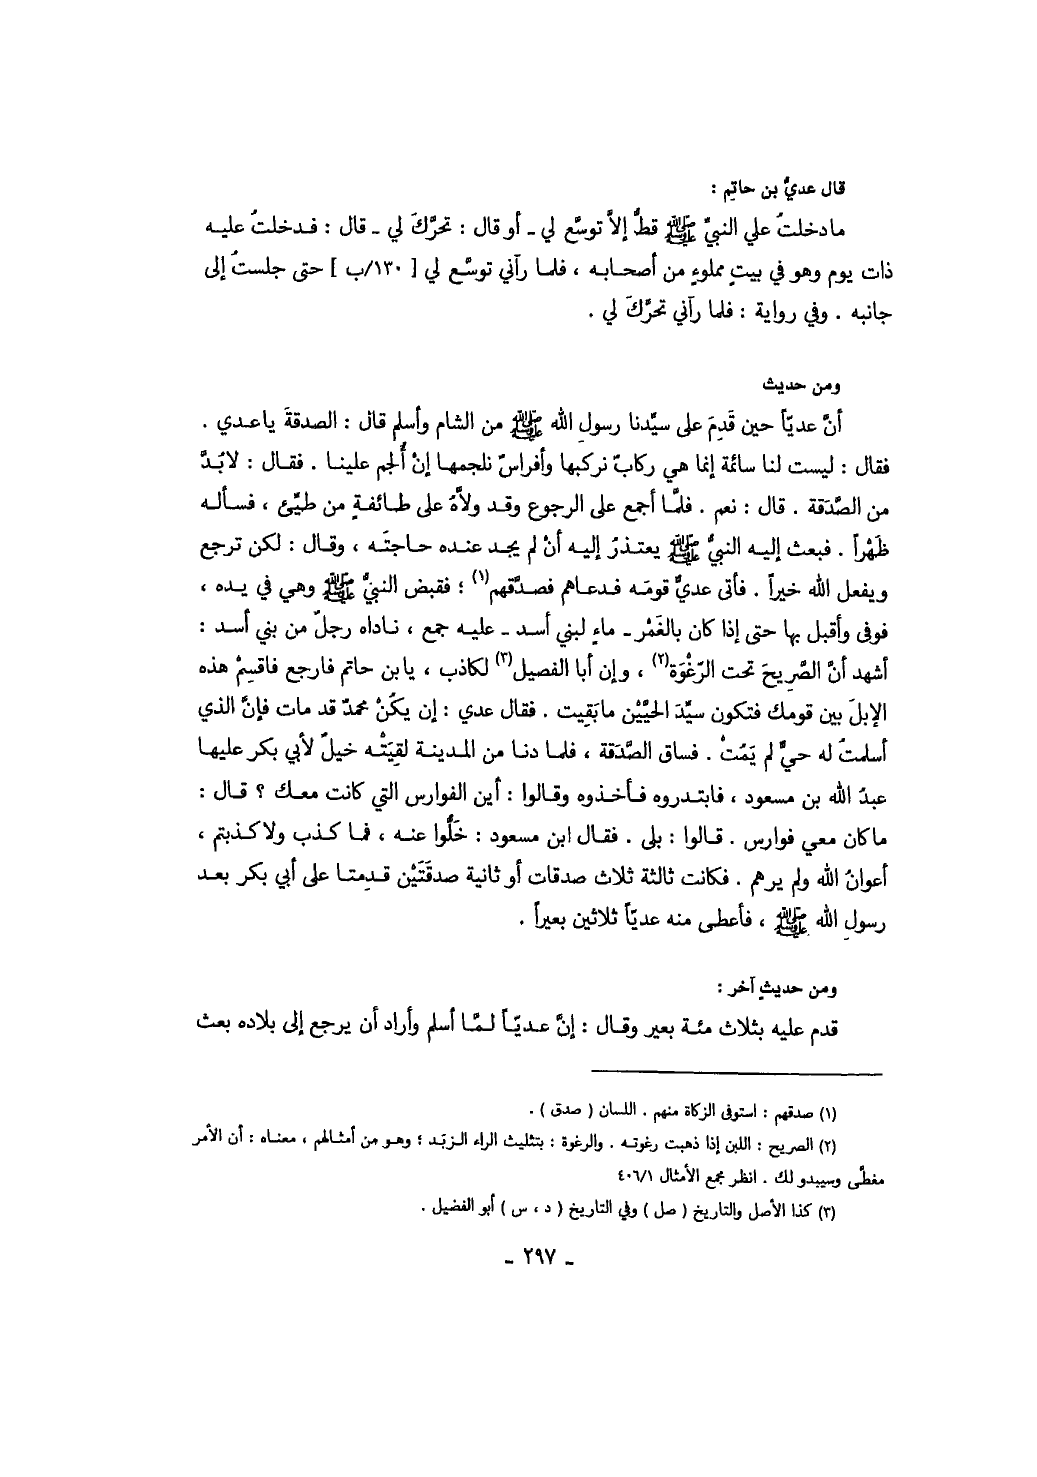 قال عديُّ بن حاتِم :
مادخلتُ علي النبيِّ ﷺ قطُّ إلاَّ توسَّع لي ـ أو قال : تحرَّكَ لي ـ قال : فـدخلتُ عليـه
ذات يوم وهو في بيتٍ مملوءٍ من أصحابـه ، فلمـا رآني توسَّع لي [ ١٣٠/ب ] حتى جلستُ إلى
جانبه . وفي رواية : فلما رآني تحرَّكَ لي .
ومن حديث
أنَّ عديّاً حين قَدِمَ على سيِّدنا رسولِ الله ﷺ من الشام وأسلم قال : الصدقةَ ياعـدي .
فقال : ليست لنا سائمة إنما هي ركابٌ نركبها وأفراسٌ نلجمهـا إنْ أُلجم علينـا . فقـال : لابُـدَّ
من الصَّدَقة . قال : نعم . فلمَّـا أجمع على الرجوع وقـد ولاَّهُ على طـائفـةٍ من طيِّئ ، فسـألـه
ظَهْراً . فبعث إليـه النبيُّ ﷺ يعتـذرُ إليـه أنْ لم يجـد عنـده حـاجتَـه ، وقـال : لكن ترجع
ويفعل الله خيراً . فأتى عديٌّ قومَـه فـدعـاهم فصـدَّقهم(١) ؛ فقبض النبيُّ ﷺ وهي في يـده ،
فوفى وأقبل بها حتى إذا كان بالغَمْر ـ ماءٍ لبني أسد ـ عليـه جمع ، نـاداه رجلٌ من بني أسـد :
أشهد أنَّ الصَّرِيحَ تحت الرّغْوَة(٢) ، وإن أبا الفصيل(٣) لكاذب ، يابن حاتم فارجع فاقسِمْ هذه
الإبلَ بين قومك فتكون سيِّدَ الحيَّيْن مابَقِيت . فقال عدي : إن يكُنْ محمدٌ قد مات فإنَّ الذي
أسلمتُ له حيٌّ لم يَمُتْ . فساق الصَّدَقة ، فلمـا دنـا من المـدينـة لقيَتْـه خيلٌ لأبي بكر عليهـا
عبدُ الله بن مسعود ، فابتـدروه فـأخـذوه وقـالوا : أين الفوارس التي كانت معـك ؟ قـال :
ماكان معي فوارس . قـالوا : بلى . فقـال ابن مسعود : خَلُّوا عنـه ، فـا كـذب ولاكـذبتم ،
أعوانُ الله ولم يرهم . فكانت ثالثة ثلاث صدقات أو ثانية صدقَتَيْن قـدِمتـا على أبي بكر بعـد
رسولِ الله ﷺ ، فأعطى منه عديّاً ثلاثين بعيراً .
ومن حديثٍ آخر :
قدم عليه بثلاث مئـة بعير وقـال : إنَّ عـديّـاً لـمَّا أسلم وأراد أن يرجع إلى بلاده بعث
(١) صدقهم : استوفى الزكاة منهم . اللسان ( صدق ) .
(٢) الصريح : اللبن إذا ذهبت رغوتـه . والرغوة : بتثليث الراء الـزبَـد ؛ وهـو من أمثـالهم ، معنـاه : أن الأمر
مغطَّى وسيبدو لك . انظر مجمع الأمثال ٤٠٦/١
(٣) كذا الأصل والتاريخ ( صل ) وفي التاريخ ( د ، س ) أبو الفضيل .
ـ ٢٩٧ ـ